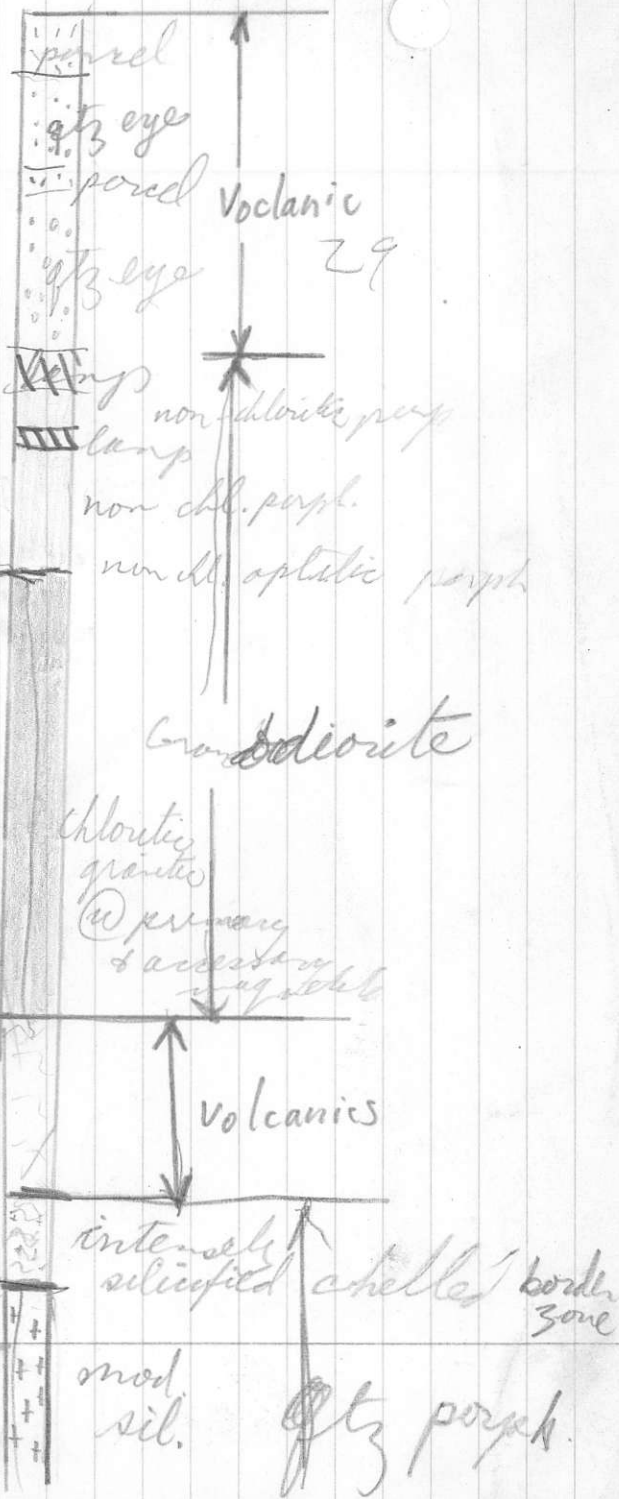 porcel
qtz eye
porcel
Voclanic
29
qtz eye
lamp
non-chloritic porp
lamp
non chl. porph.
non chl. aplitic porph
Granodiorite
chloritic
granitic
@ primary
& accessory
magnetite
Volcanics
intensely
silicified chilled border
zone
mod.
sil.
Qtz porph.